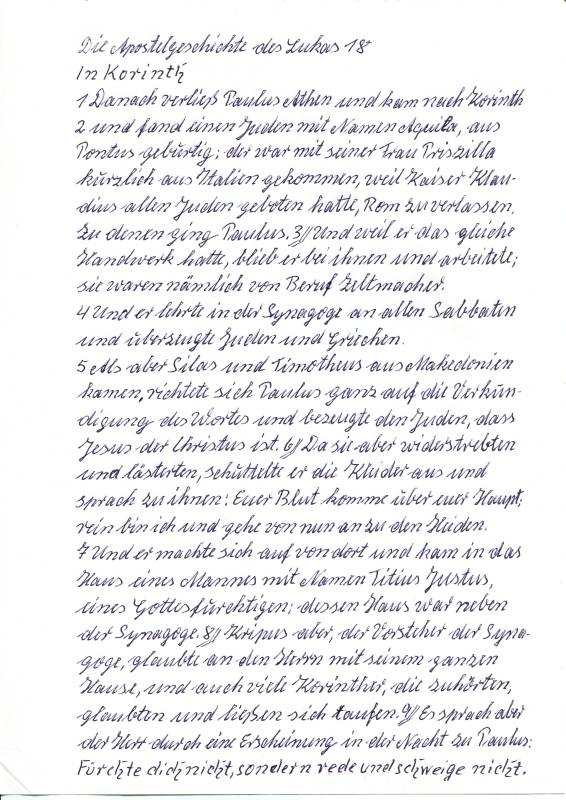 Die Apostelgeschichte des Lukas 18
In Korinth
1 Danach verließ Paulus Athen und kam nach Korinth
2 und fand einen Juden mit Namen Aquila, aus
Pontus gebürtig; der war mit seiner Frau Priszilla
kürzlich aus Italien gekommen, weil Kaiser Klau-
dius allen Juden geboten hatte, Rom zu verlassen.
Zu denen ging Paulus. 3// Und weil er das gleiche
Handwerk hatte, blieb er bei ihnen und arbeitete;
sie waren nämlich von Beruf Zeltmacher.
4 Und er lehrte in der Synagoge an allen Sabbaten
und überzeugte Juden und Griechen.
5 Als aber Silas und Timotheus aus Makedonien
kamen, richtete sich Paulus ganz auf die Verkün-
digung des Wortes und bezeugte den Juden, dass
Jesus der Christus ist. 6// Da sie aber widerstrebten
und lästerten, schüttelte er die Kleider aus und
sprach zu ihnen: Euer Blut komme über euer Haupt;
rein bin ich und gehe von nun an zu den Heiden.
7 Und er machte sich auf von dort und kam in das
Haus eines Mannes mit Namen Titius Justus,
eines Gottesfürchtigen; dessen Haus war neben
der Synagoge. 8// Kripus aber, der Vorsteher der Syna-
goge, glaubte an den Herrn mit seinem ganzen
Hause, und auch viele Korinther, die zuhörten,
glaubten und ließen sich taufen. 9// Es sprach aber
der Herr durch eine Erscheinung in der Nacht zu Paulus:
Fürchte dich nicht, sondern rede und schweige nicht.